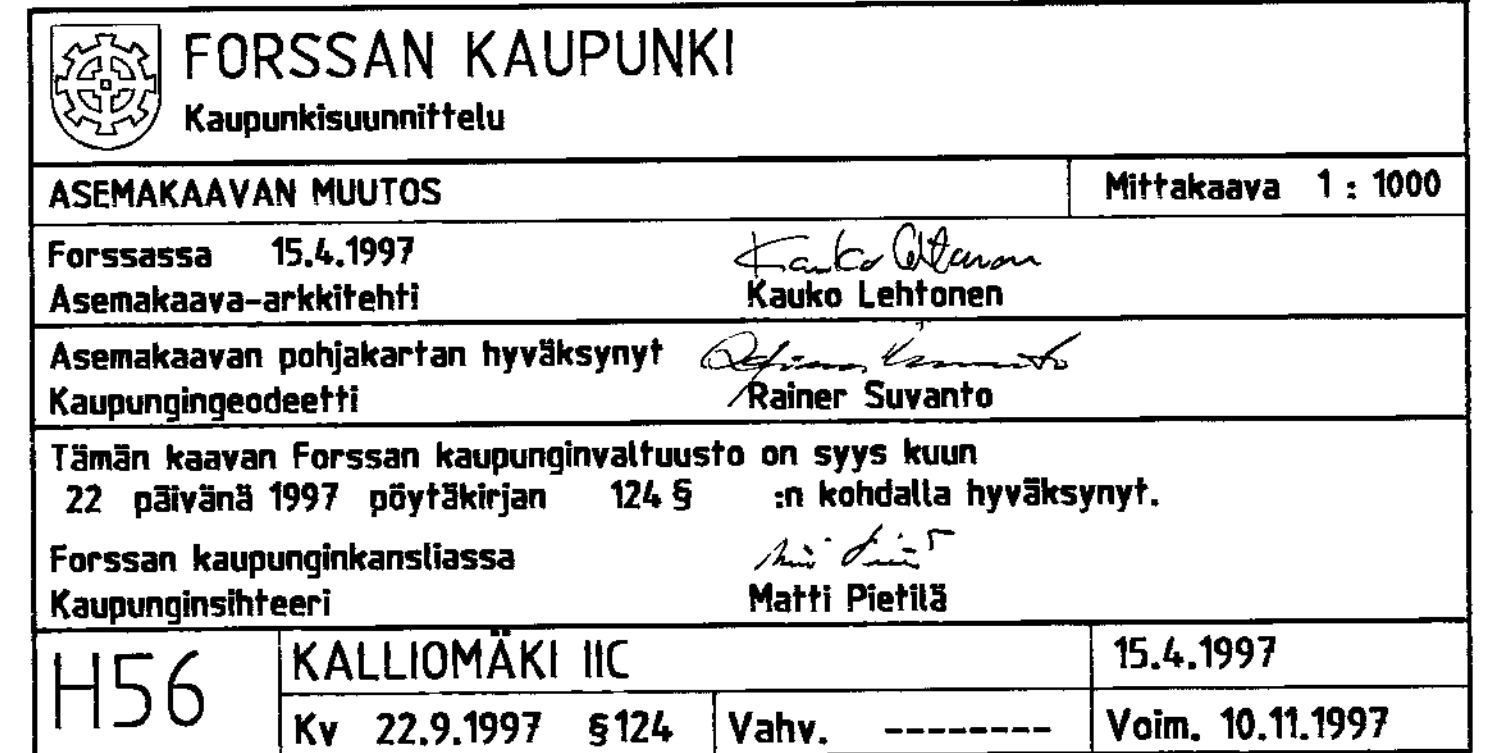 FORSSAN KAUPUNKI
Kaupunkisuunnittelu
ASEMAKAAVAN MUUTOS Mittakaava 1 : 1000
Forssassa 15.4.1997
Asemakaava-arkkitehti Kauko Lehtonen
Asemakaavan pohjakartan hyväksynyt
Kaupungingeodeetti Rainer Suvanto
Tämän kaavan Forssan kaupunginvaltuusto on syys kuun
22 päivänä 1997 pöytäkirjan 124 § :n kohdalla hyväksynyt.
Forssan kaupunginkansliassa
Kaupunginsihteeri Matti Pietilä
H56 KALLIOMÄKI IIC 15.4.1997
Kv 22.9.1997 §124 Vahv. -------- Voim. 10.11.1997